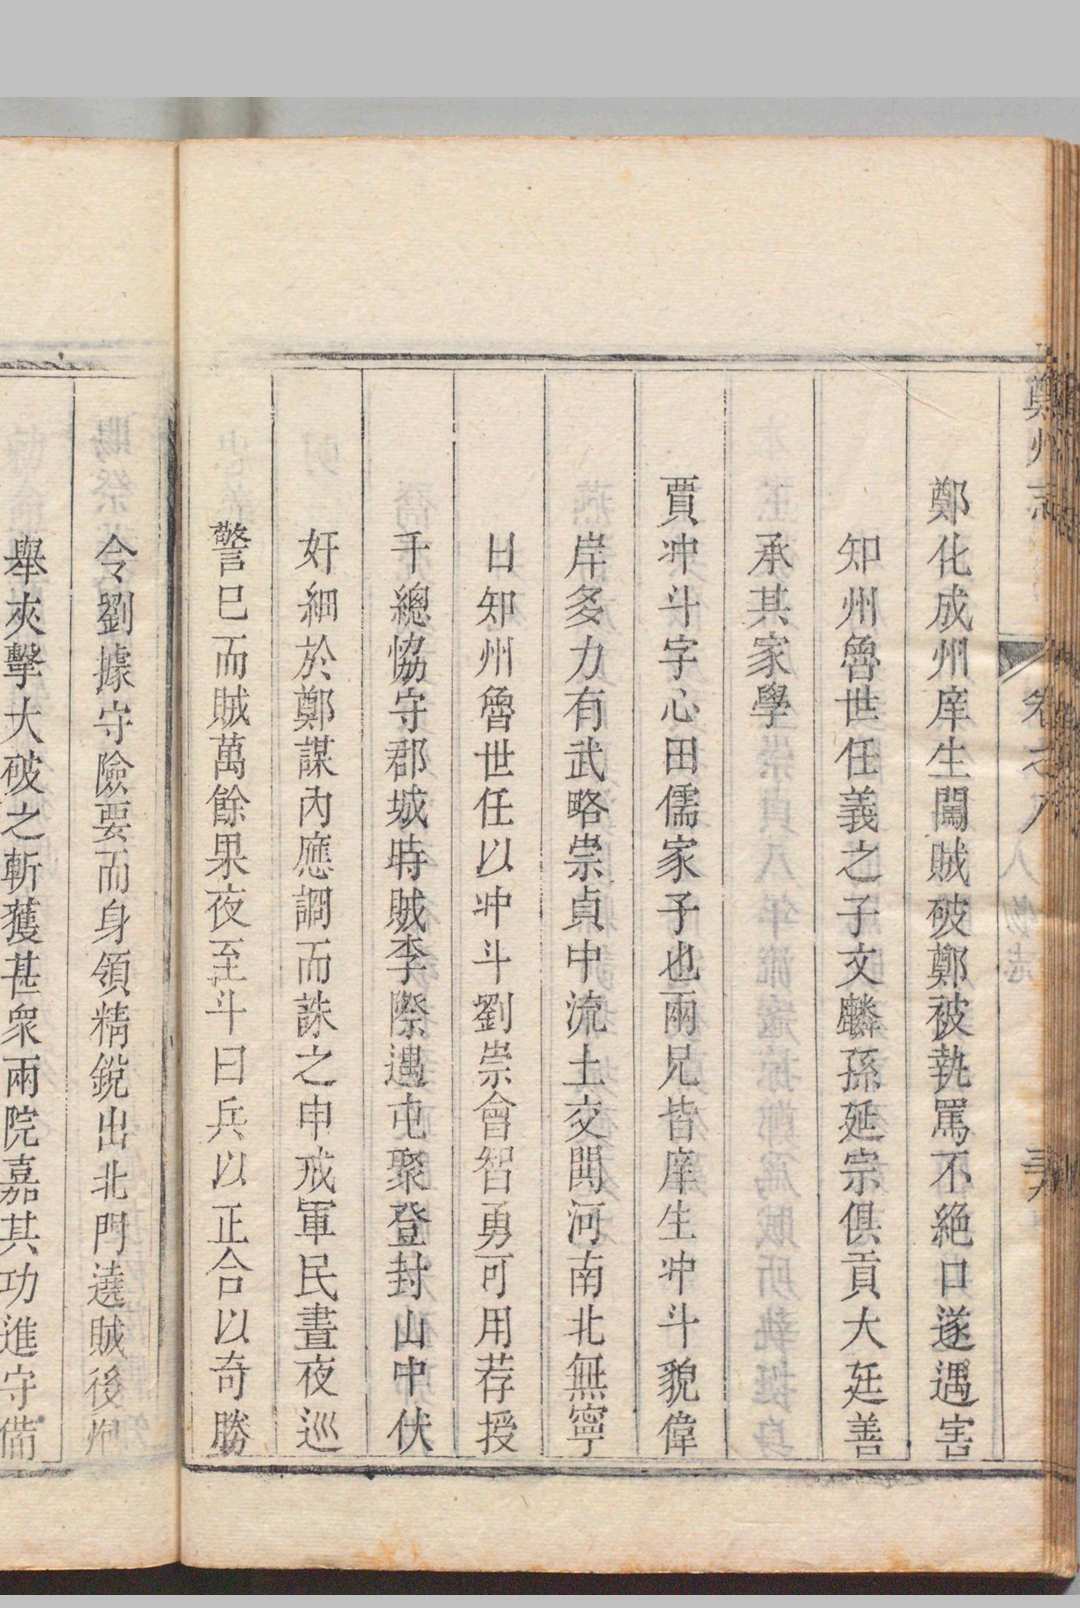 鄭州志
卷之八
鄭化成州庠生闖賊破鄭被執罵不絕口遂遇害
知州魯世任義之子文麟孫延宗俱貢大廷善
承其家學
賈冲斗字心田儒家子也兩兄皆庠生冲斗貌偉
岸多力有武略崇貞中流土交閧河南北無寧
日知州魯世任以冲斗劉崇會智勇可用荐授
千總恊守郡城時賊李際遇屯聚登封山中伏
奸細於鄭謀內應調而誅之申戒軍民晝夜巡
警巳而賊萬餘果夜至斗曰兵以正合以奇勝
令劉據守險要而身領精銳出北門遶賊後炮
舉夾擊大破之斬獲甚衆兩院嘉其功進守備